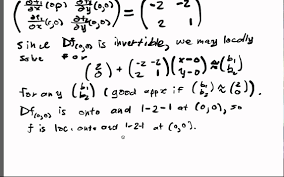 (∂f₁/∂x (0,0) ∂f₁/∂y (0,0)
∂f₂/∂x (0,0) ∂f₂/∂y (0,0)) = (-2 -2
2 1)
Since Df(0,0) is invertible, we may locally
solve for
(2
0) + (-2 -2
2 1)(x-0
y-0) ≈ (b₁
b₂)
for any (b₁
b₂) (good appx if (b₁
b₂) ≈ (2
0)).
Df(0,0) is onto and 1-2-1 at (0,0), so
f is loc. onto and 1-2-1 at (0,0).